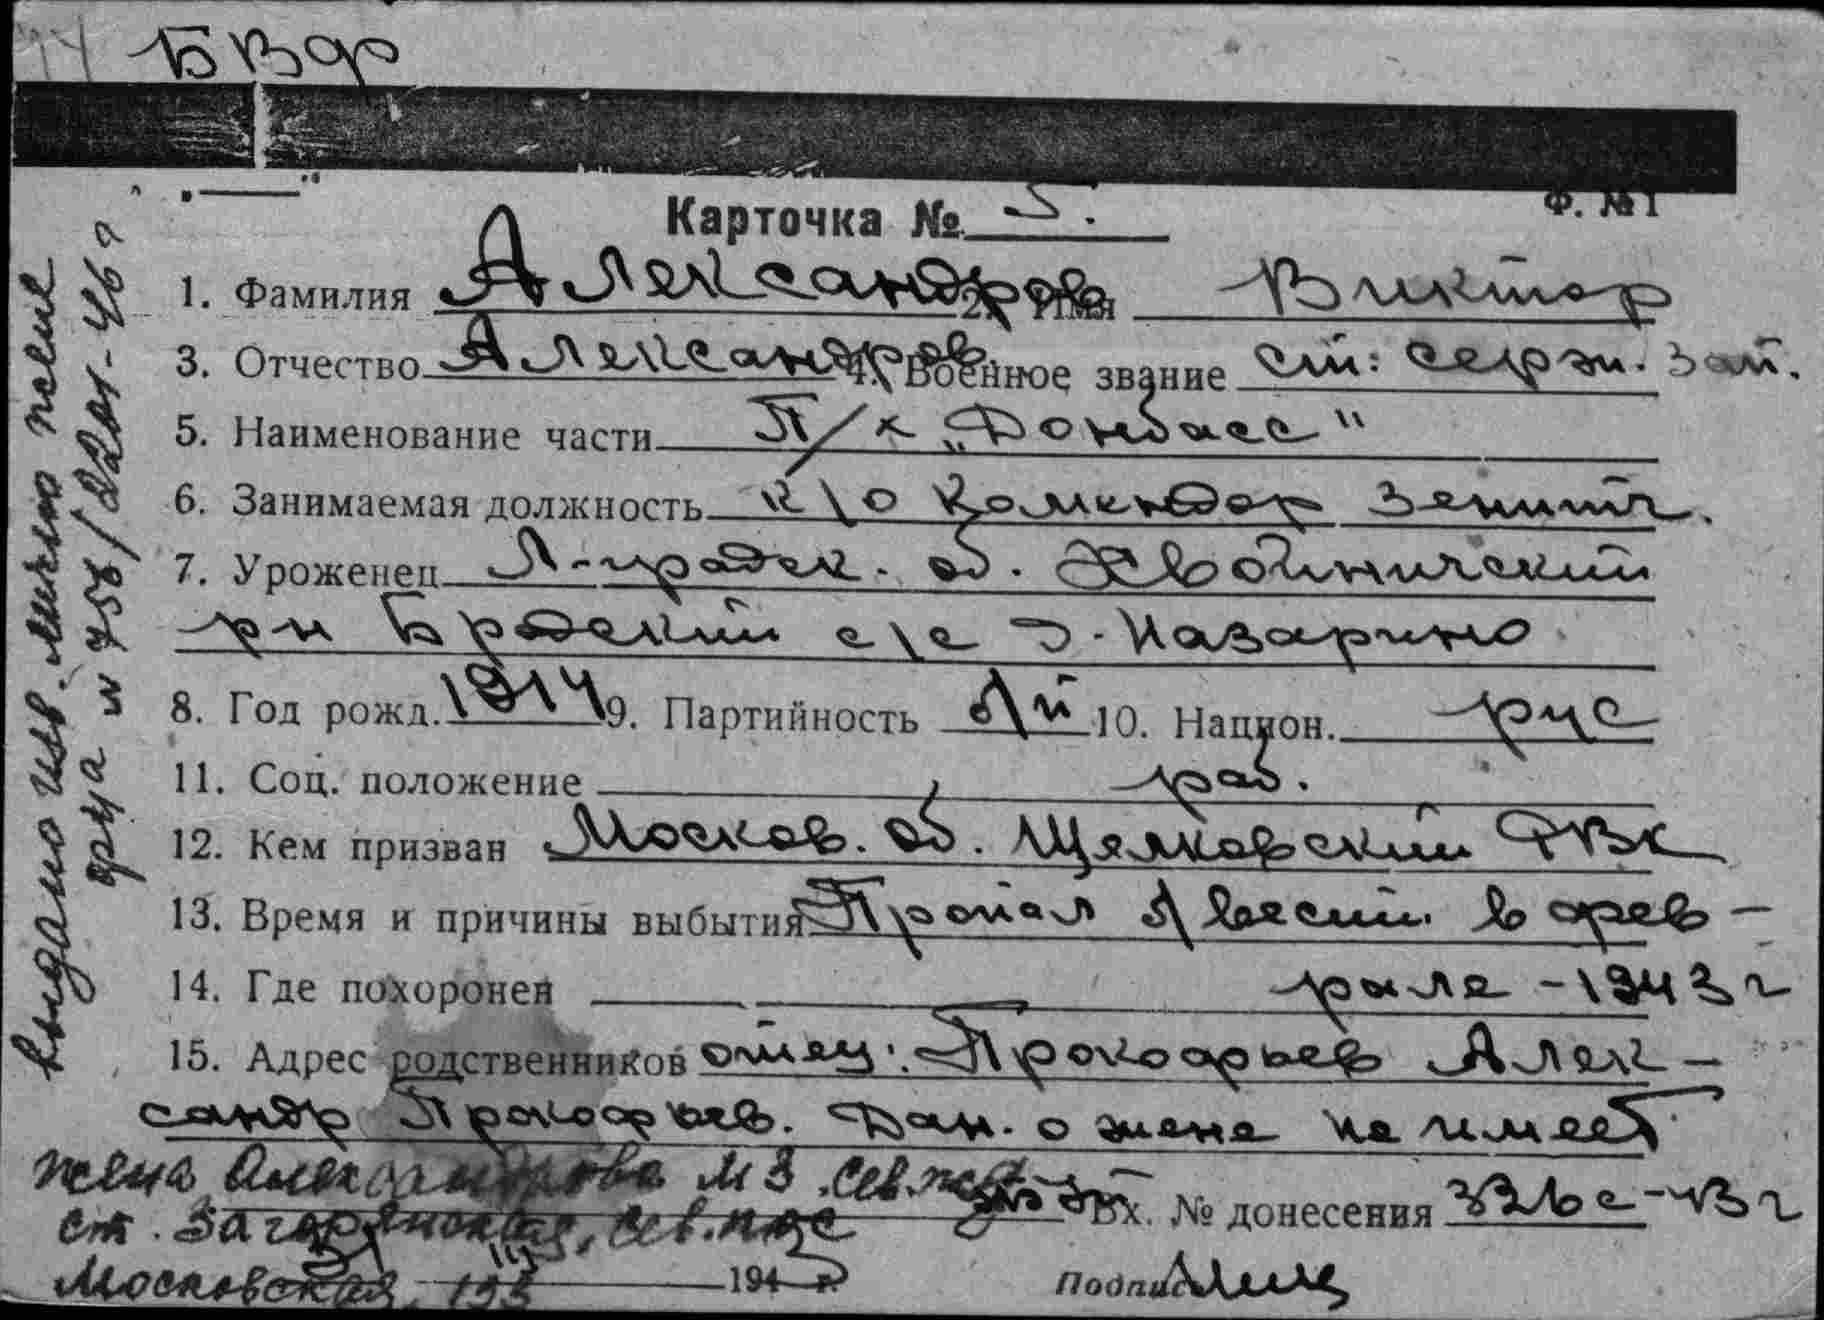 БВФ
Ф. №1
Карточка № 5.
1. Фамилия Александров 2. Имя Виктор
3. Отчество Александров. 4. Военное звание ст: серж. Зап.
5. Наименование части П/х „Донбасс"
6. Занимаемая должность к\о Комендор Зенитч.
7. Уроженец Л-градск. об. Хвойничский
р-н Бродский с\с д. Назарино
8. Год рожд. 1914 9. Партийность б\п 10. Национ. рус
11. Соц. положение раб.
12. Кем призван Москов. об. Щелковский РВК
13. Время и причины выбытия Пропал б\вести в фев-
14. Где похоронен рале - 1943 г
15. Адрес родственников отец: Прокофьев Алек-
сандр Прокофьев. Дан. о жене не имеет
жена Александрова М З. Сев. жел
ст. Загорянская, Вх. № донесения 332бс-43 г
Московская, 133 194 г. Подпись
выдано изв. лично жене